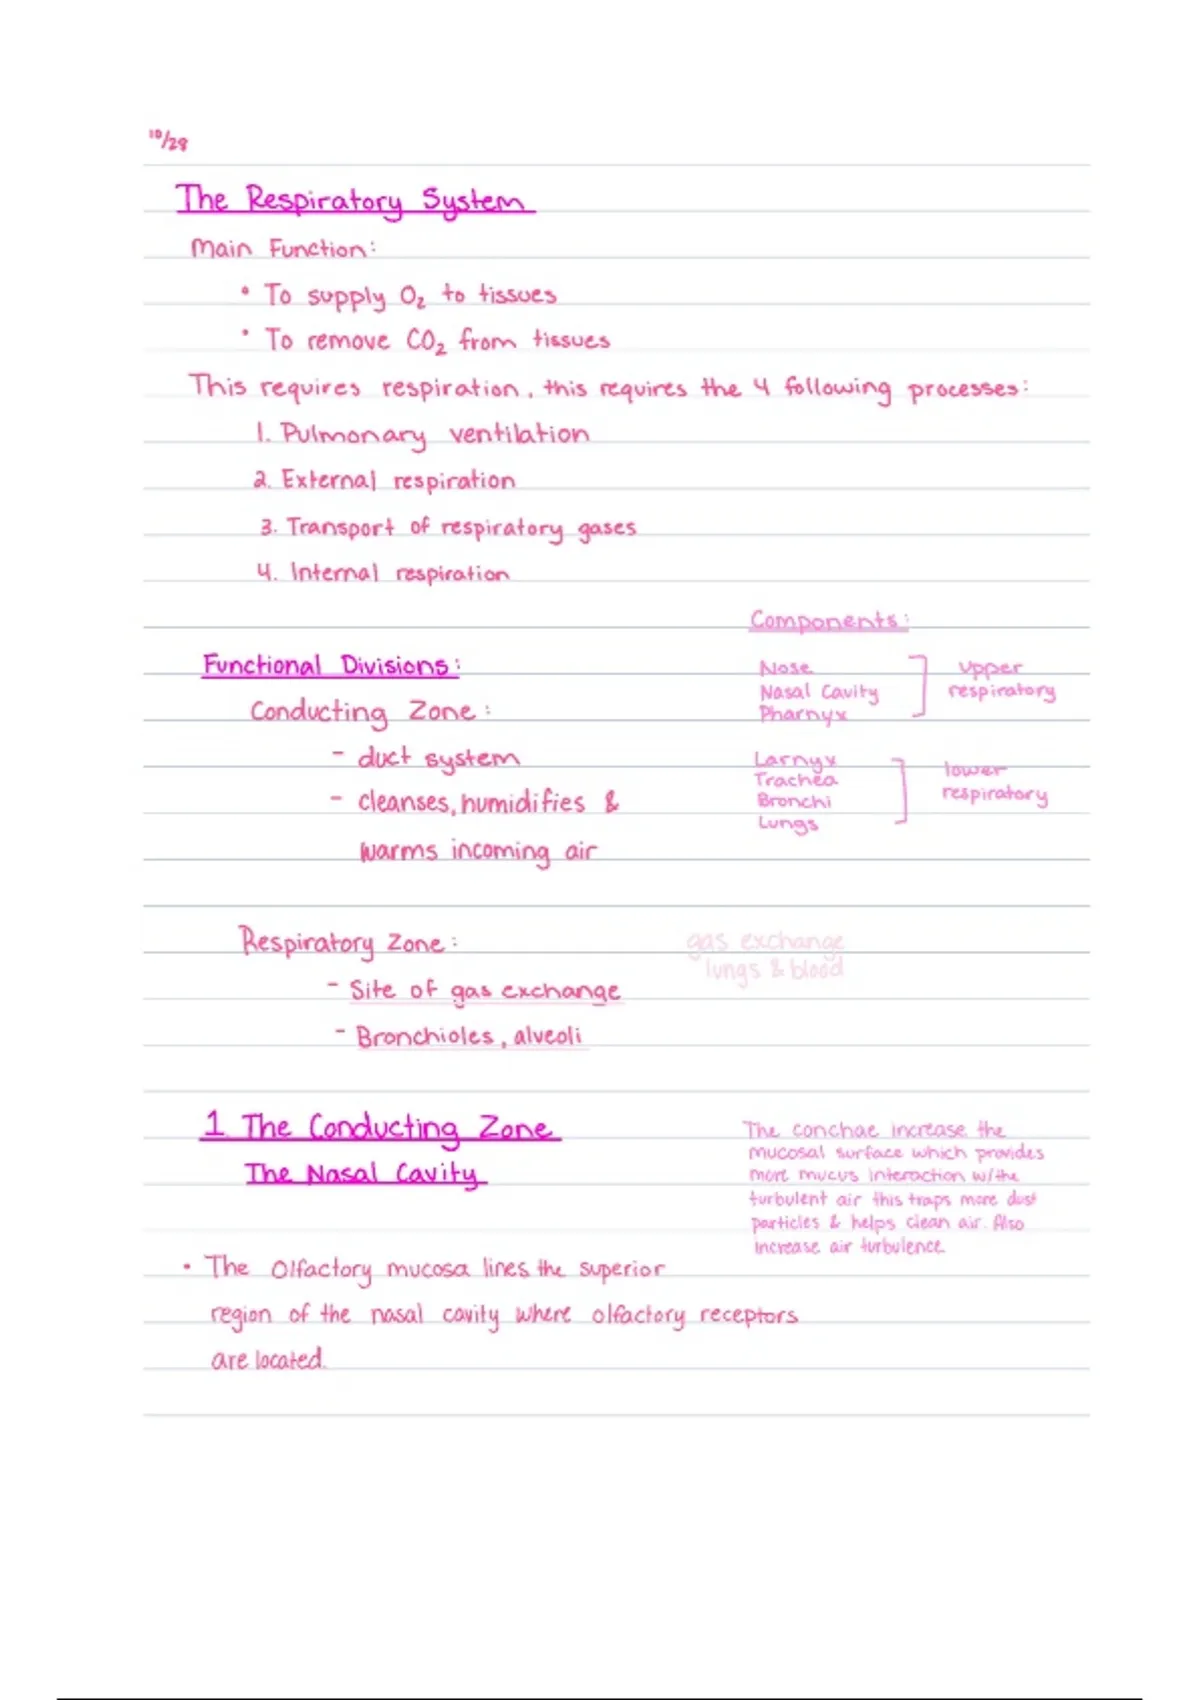 10/28
The Respiratory System
Main Function:
• To supply O₂ to tissues
• To remove CO₂ from tissues
This requires respiration, this requires the 4 following processes:
1. Pulmonary ventilation
2. External respiration
3. Transport of respiratory gases
4. Internal respiration
Components:
Nose
Nasal Cavity
Pharnyx
Upper
respiratory
Larnyx
Trachea
Bronchi
Lungs
lower
respiratory
Functional Divisions:
Conducting Zone:
- duct system
- cleanses, humidifies &
warms incoming air
Respiratory Zone:
- Site of gas exchange
- Bronchioles, alveoli
gas exchange
lungs & blood
1 The Conducting Zone
The Nasal Cavity
The conchae increase the
mucosal surface which provides
more mucus interaction w/the
turbulent air this traps more dust
particles & helps clean air. Also
increase air turbulence
• The Olfactory mucosa lines the superior
region of the nasal cavity where olfactory receptors
are located.